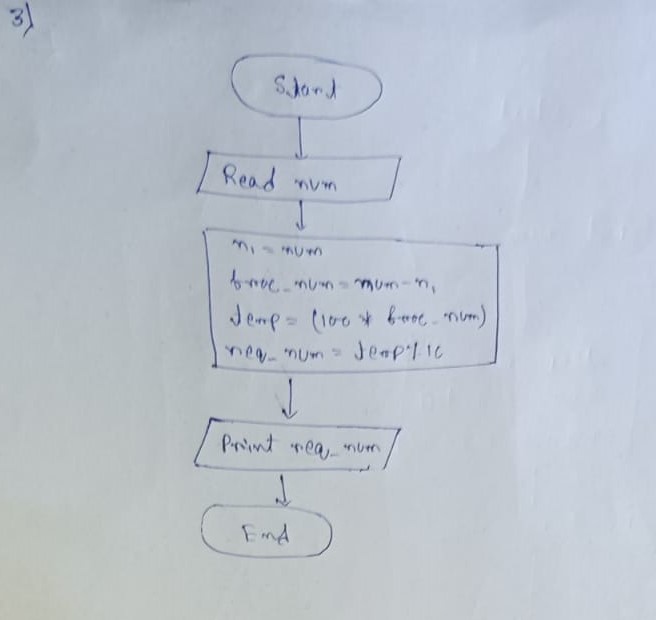 3)
Start
Read num
n1 = num
frac_num = num - n1
temp = (100 * frac_num)
req_num = temp % 10
Print req_num
End